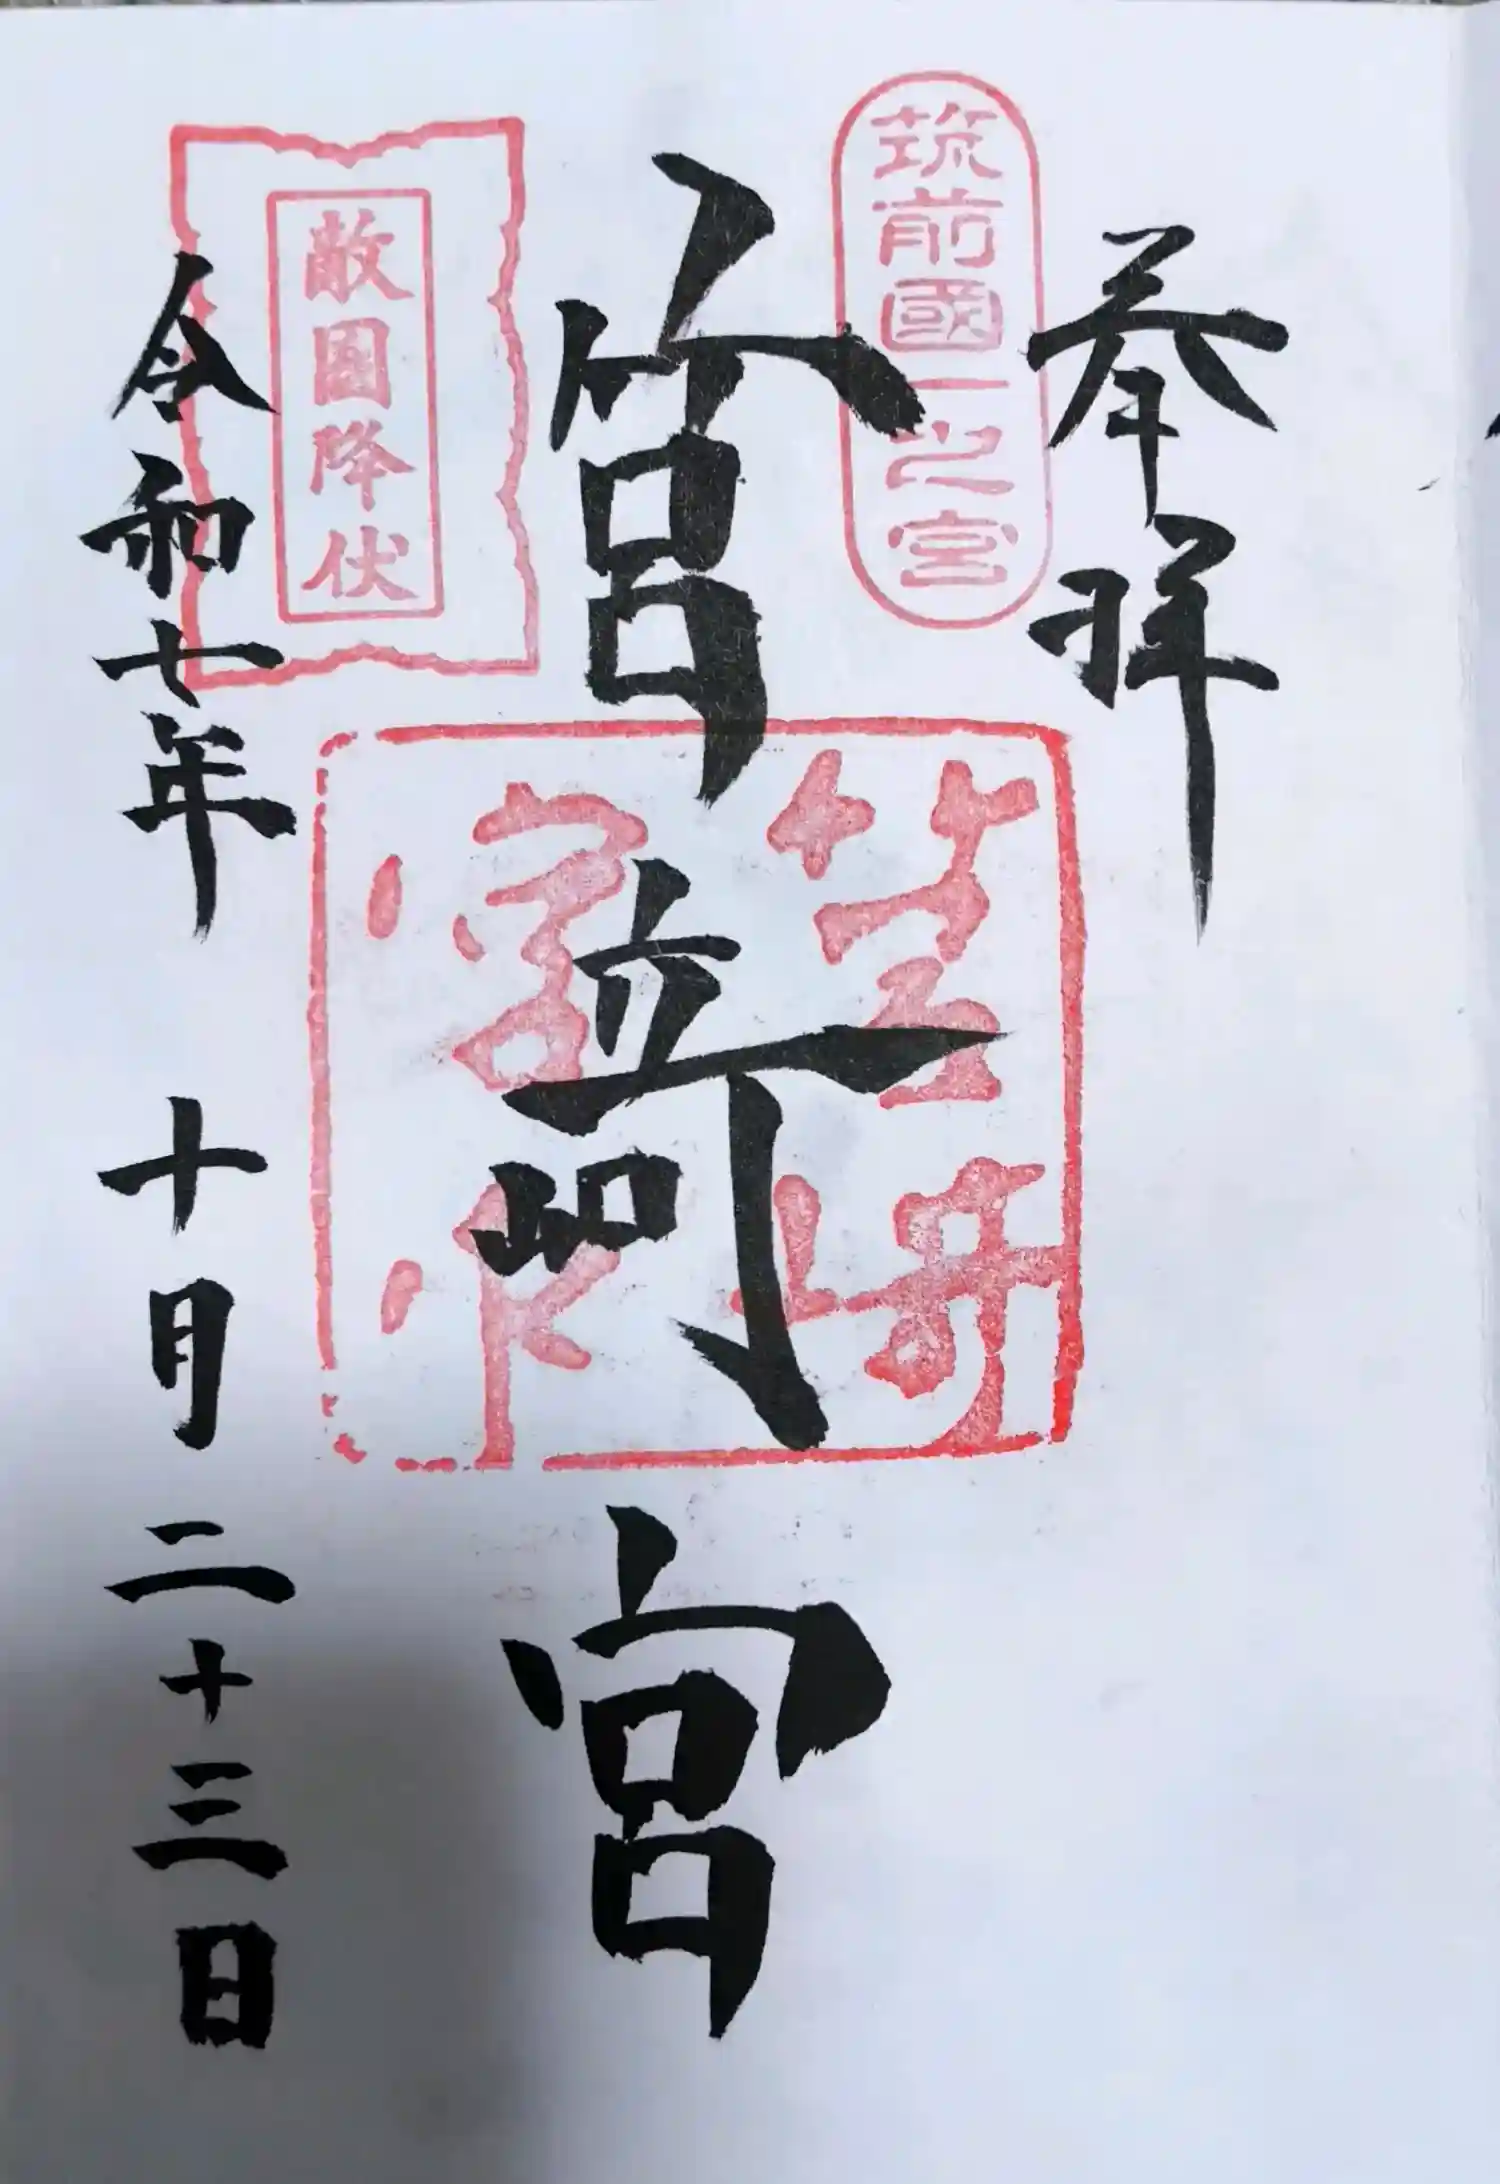 奉拝
筑前國一之宮
筥崎宮
筥崎宮
敵國降伏
令和七年 十月二十三日